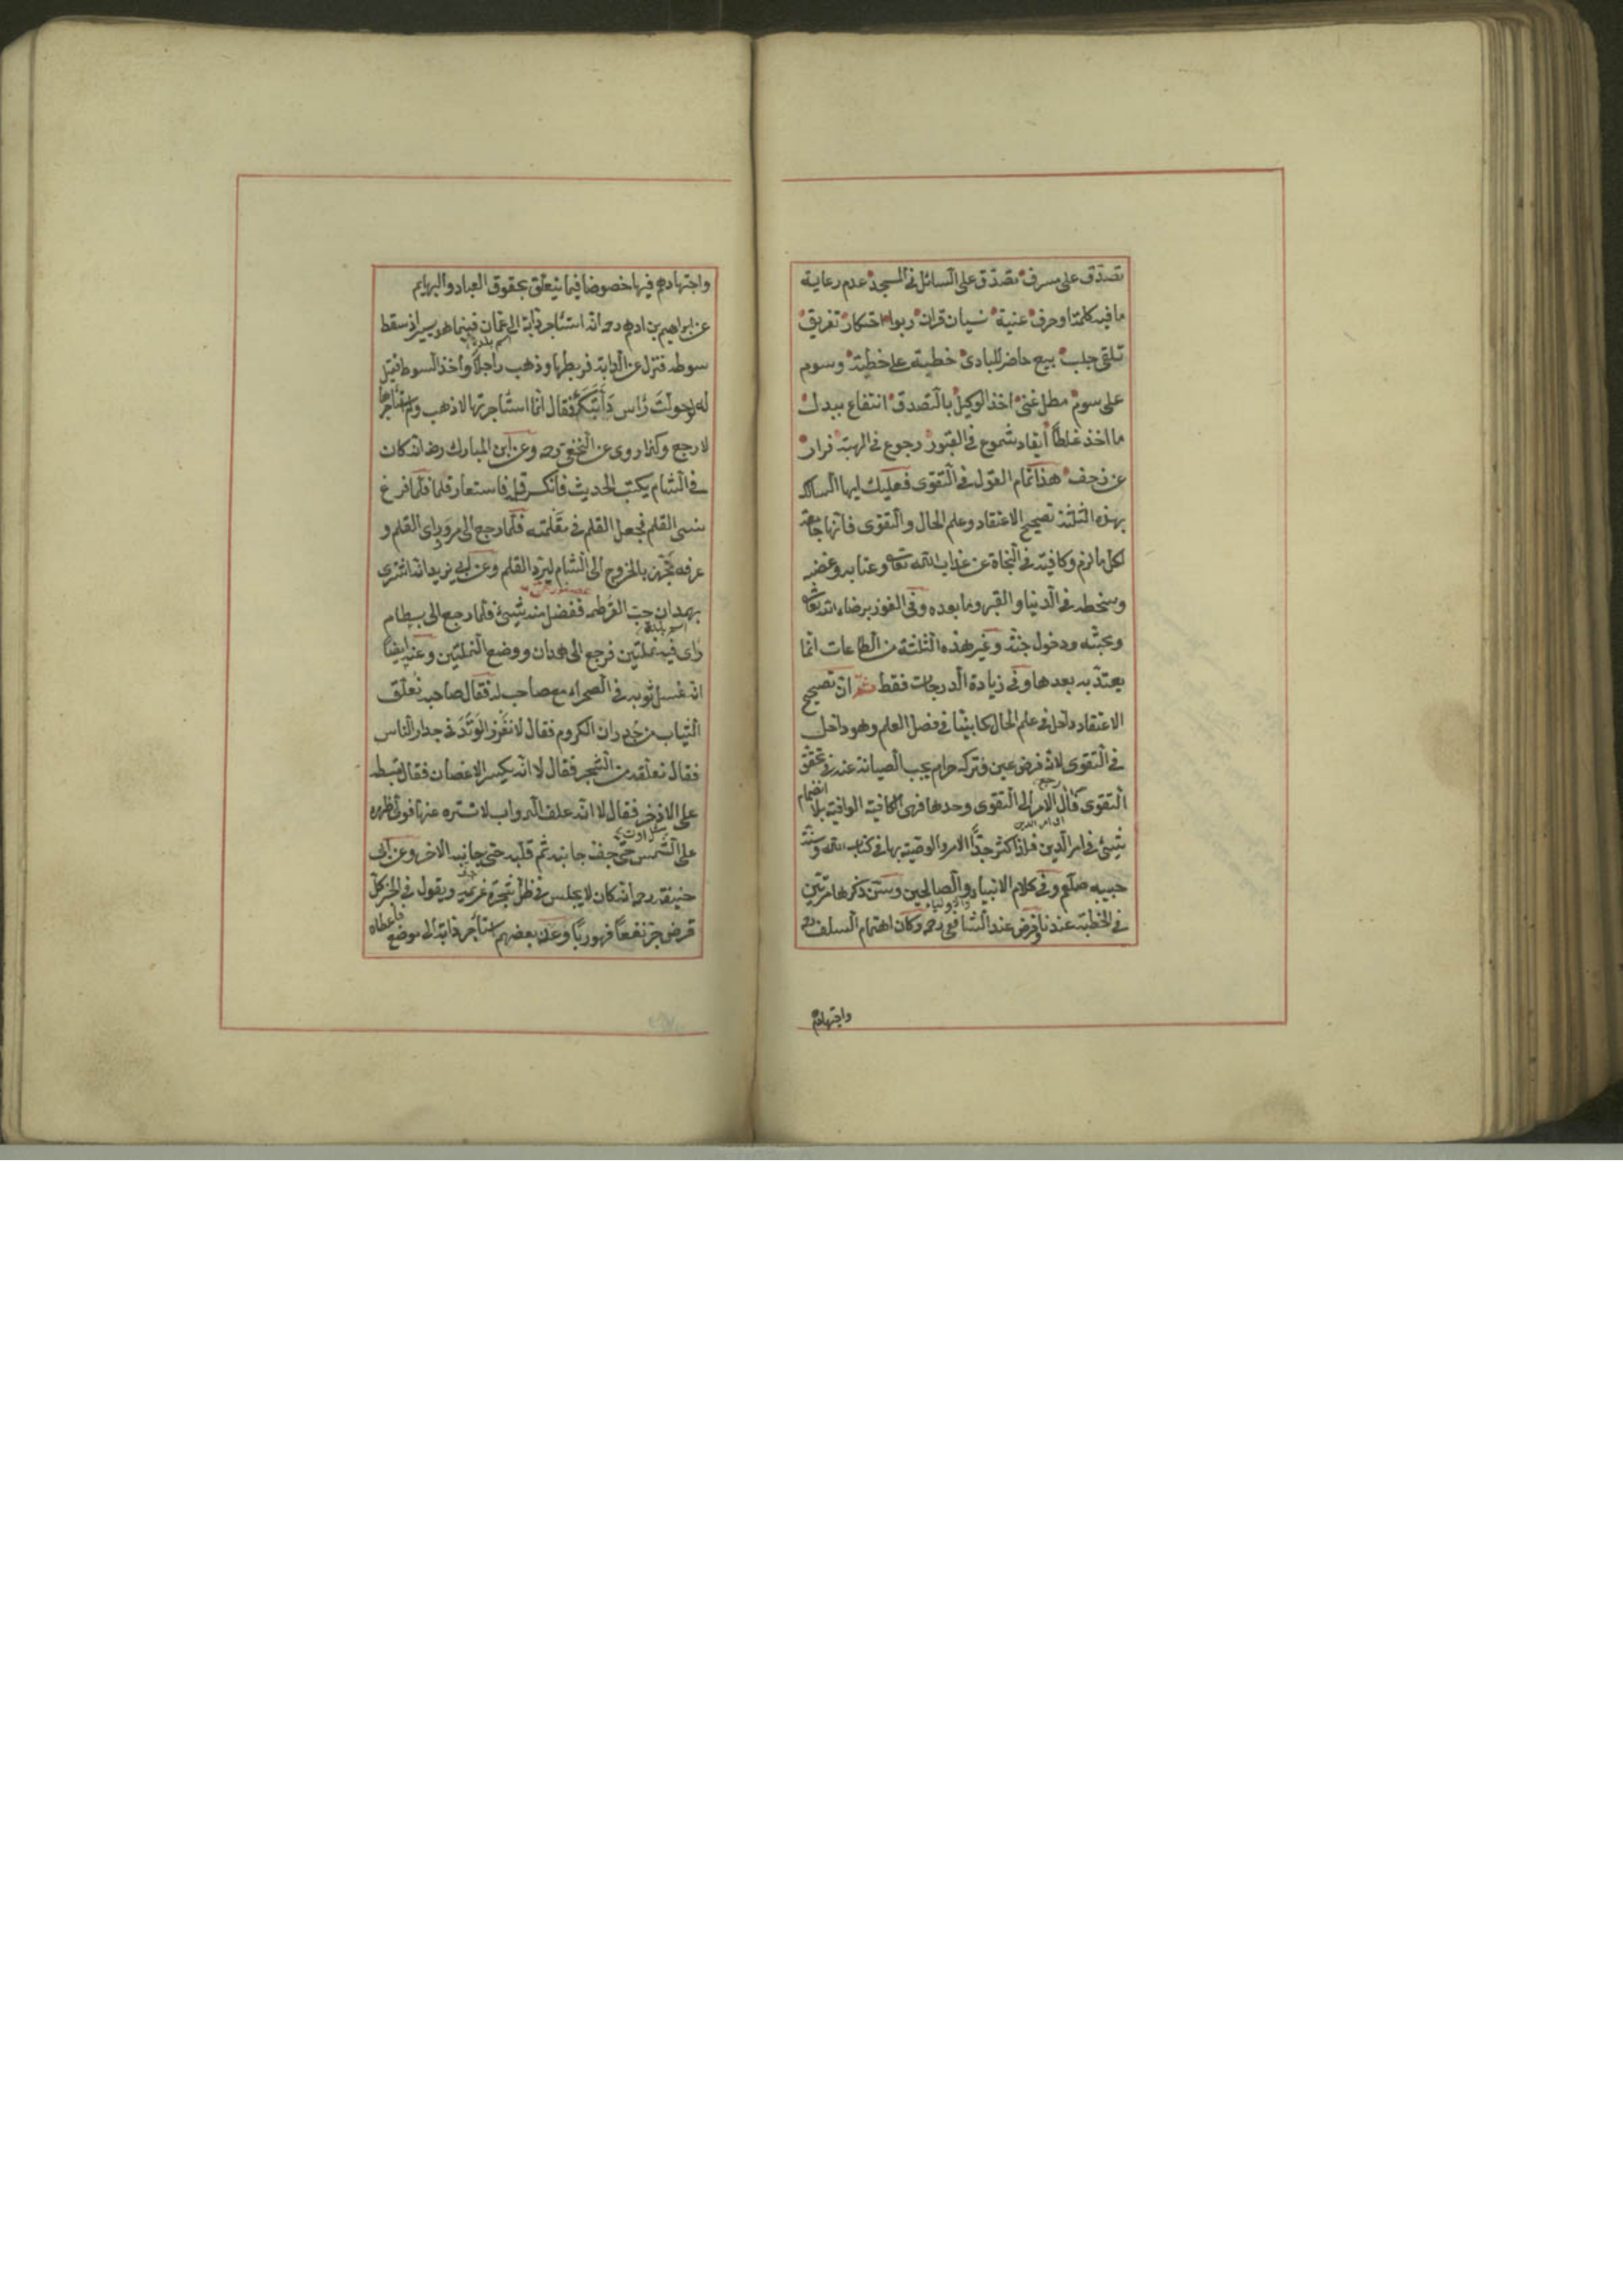 تصدّق على مسرف تصدّق على السائل في المسجد عدم رعاية
ما فيه كلمة او حرف عنية نسيان قران ربوا احتكار تفريق
تلقى جلب بيع حاضر للبادى خطبة على خطبة وسوم
على سوم مطل غنى اخذ الوكيل بالتصدق انتفاع ببدل
ما اخذ غلطاً ايقاد شموع في القبور رجوع في الهبة فرار
عن زحف هذا تمام القول في التقوى فعليك ايها السالك
بهذه الثلثة تصحيح الاعتقاد وعلم الحال والتقوى فانها جامعة
لكل ما لزم وكافية في النجاة عن عذاب الله تعالى وعتابه وغضبه
وسخطه في الدنيا والقبر وما بعده وفي الفوز برضاء الله تعالى
ومحبته ودخول جنته وغير هذه الثلثة من الطاعات انما
يعتدّ به بعدها وفي زيادة الدرجات فقط ثم ان تصحيح
الاعتقاد داخل في علم الحال كما بيّنا في فصل العلم وهو داخل
في التقوى لانه فرض عين فتركه حرام يجب الصيانة عنه في تحقق
رجع
التقوى فآل الامر الى التقوى وحدها فهي الكافية الوافية بلا انضمام
اى امر الدين
شيئ في امر الدين فلذا كثر جدًّا الامر والوصية بها في كتاب الله وسنة
حبيبه صلعم وفي كلام الانبياء والصالحين وسنن ذكرها مرتين
والاولياء
في الخطبة عندنا وفرض عند الشافعى رحه وكان اهتمام السلف
واجتهادهم
واجتهادهم فيها خصوصا فيما يتعلق بحقوق العباد والبهايم
عن ابراهيم بن ادهم رحه انه استأجر دابة الى عمان فبينما هو يسير اذ سقط
اسم بلدة
سوطه فنزل عن الدابة فربطها وذهب راجلاً واخذ السوط فقيل
له لو حولت رأس دابتك فقال انما استأجرتها لاذهب ولم استأجرها
لارجع وكذا روى عن النخعى رحه وعن ابن المبارك رضه انه كان
في الشام يكتب الحديث فانكسر قلمه فاستعار قلما فلما فرغ
نسى القلم فجعل القلم في مقلمته فلما رجع الى مرو راى القلم و
عرفه تجهّز بالخروج الى الشام ليردّ القلم وعن ابى يزيد انه اشترى
بهمدان حب القرطم ففضل منه شيئ فلما رجع الى بسطام
اسم بلدة
راى فيه نملتين فرجع الى همدان ووضع النملتين وعنه ايضاً
انه غسل ثوبه في الصحراء مع صاحب له فقال صاحبه نعلّق
الثياب من جدران الكروم فقال لا نغرز الوتد في جدار الناس
فقال نعلقه من الشجر فقال لا انه يكسر الاغصان فقال نبسطه
على الاذخر فقال لا انه علف الدواب لا نستره عنها فولّى ظهره
على الشمس حتى جف جانبه ثم قلبه حتى جانبه الاخر وعن ابى
حنيفة رحه انه كان لا يجلس في ظل شجرة غريمه ويقول في الخبر كل
قرض جرّ نفعاً فهو ربًا وعن بعضهم استأجر دابة الى موضع فاعطاه